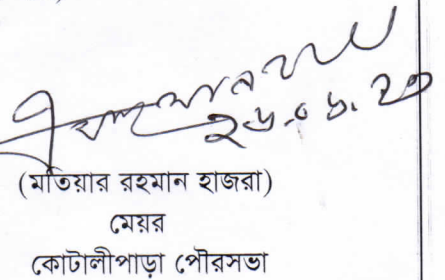 ২৬.০৬.২৩
(মতিয়ার রহমান হাজরা)
মেয়র
কোটালীপাড়া পৌরসভা